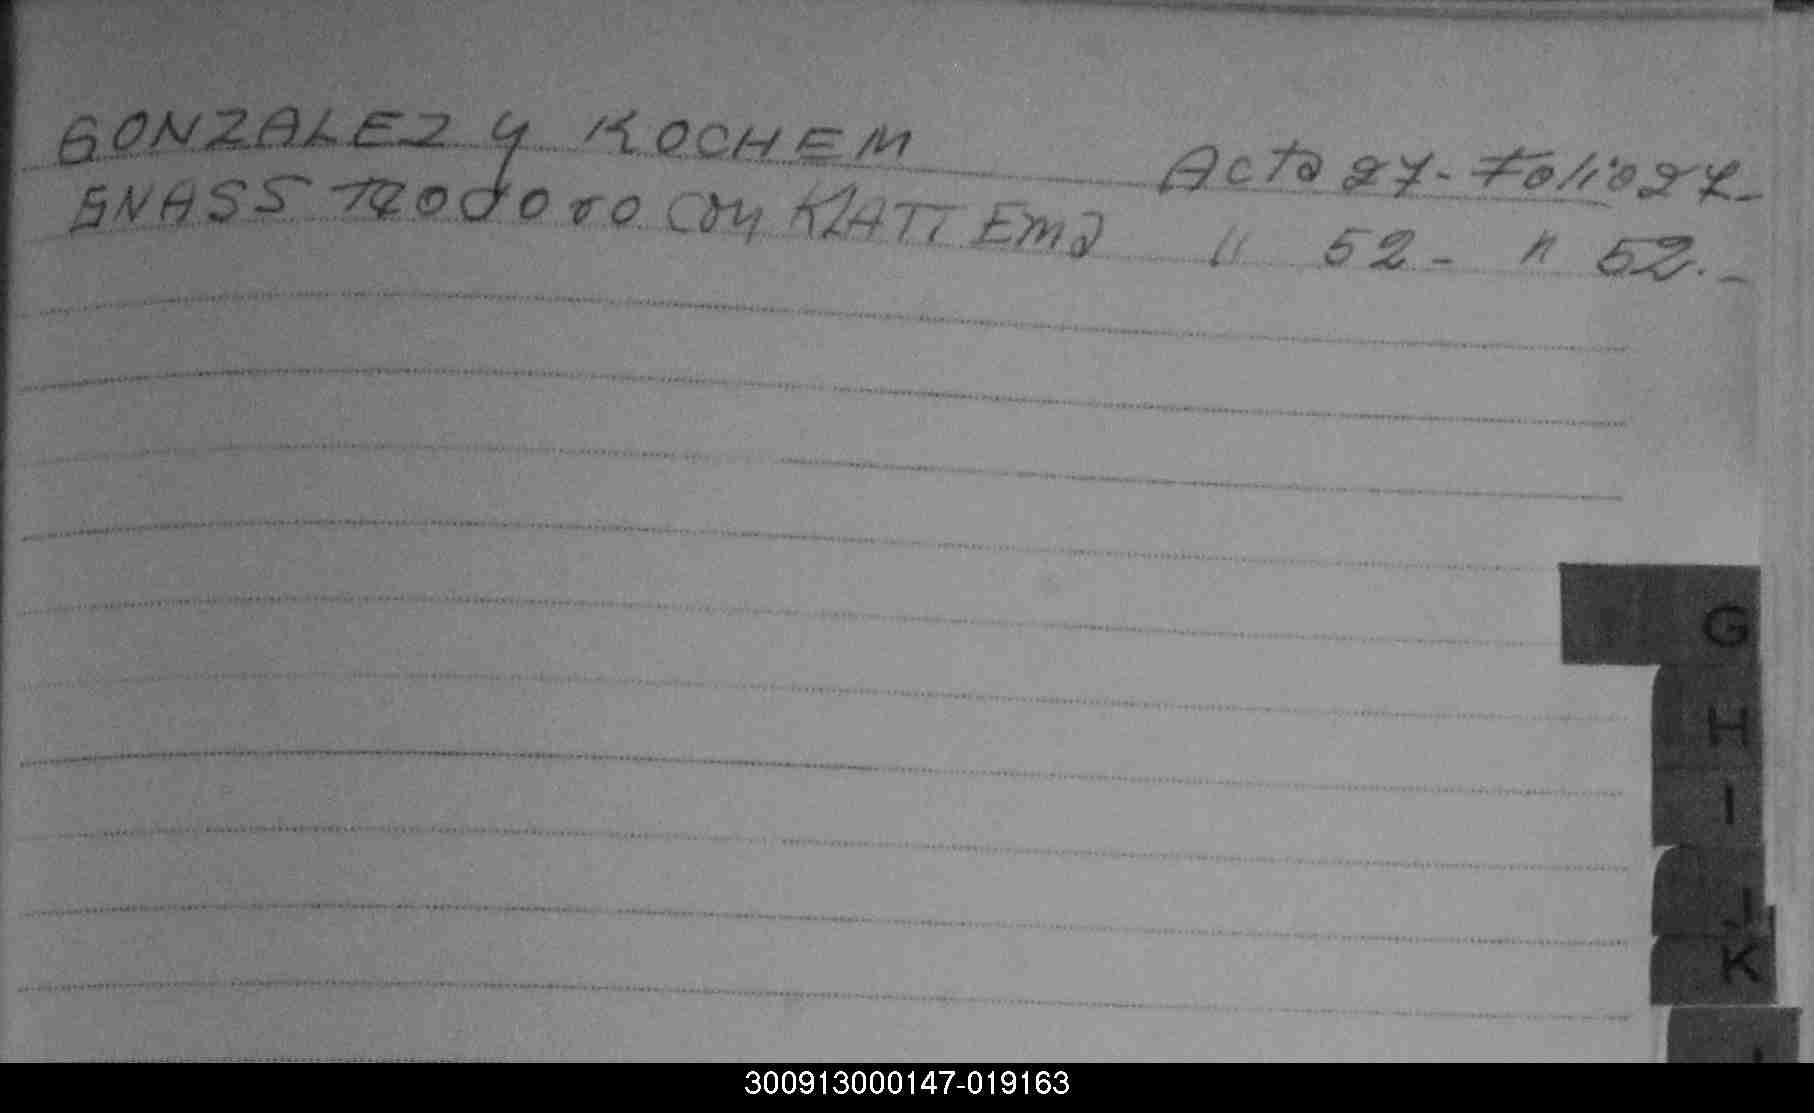 GONZALEZ y KOCHEM Acta 27- Folio 27-
GNASS Teodoro con KLATT Ema " 52- " 52.-
G
H
I
J
K
300913000147-019163